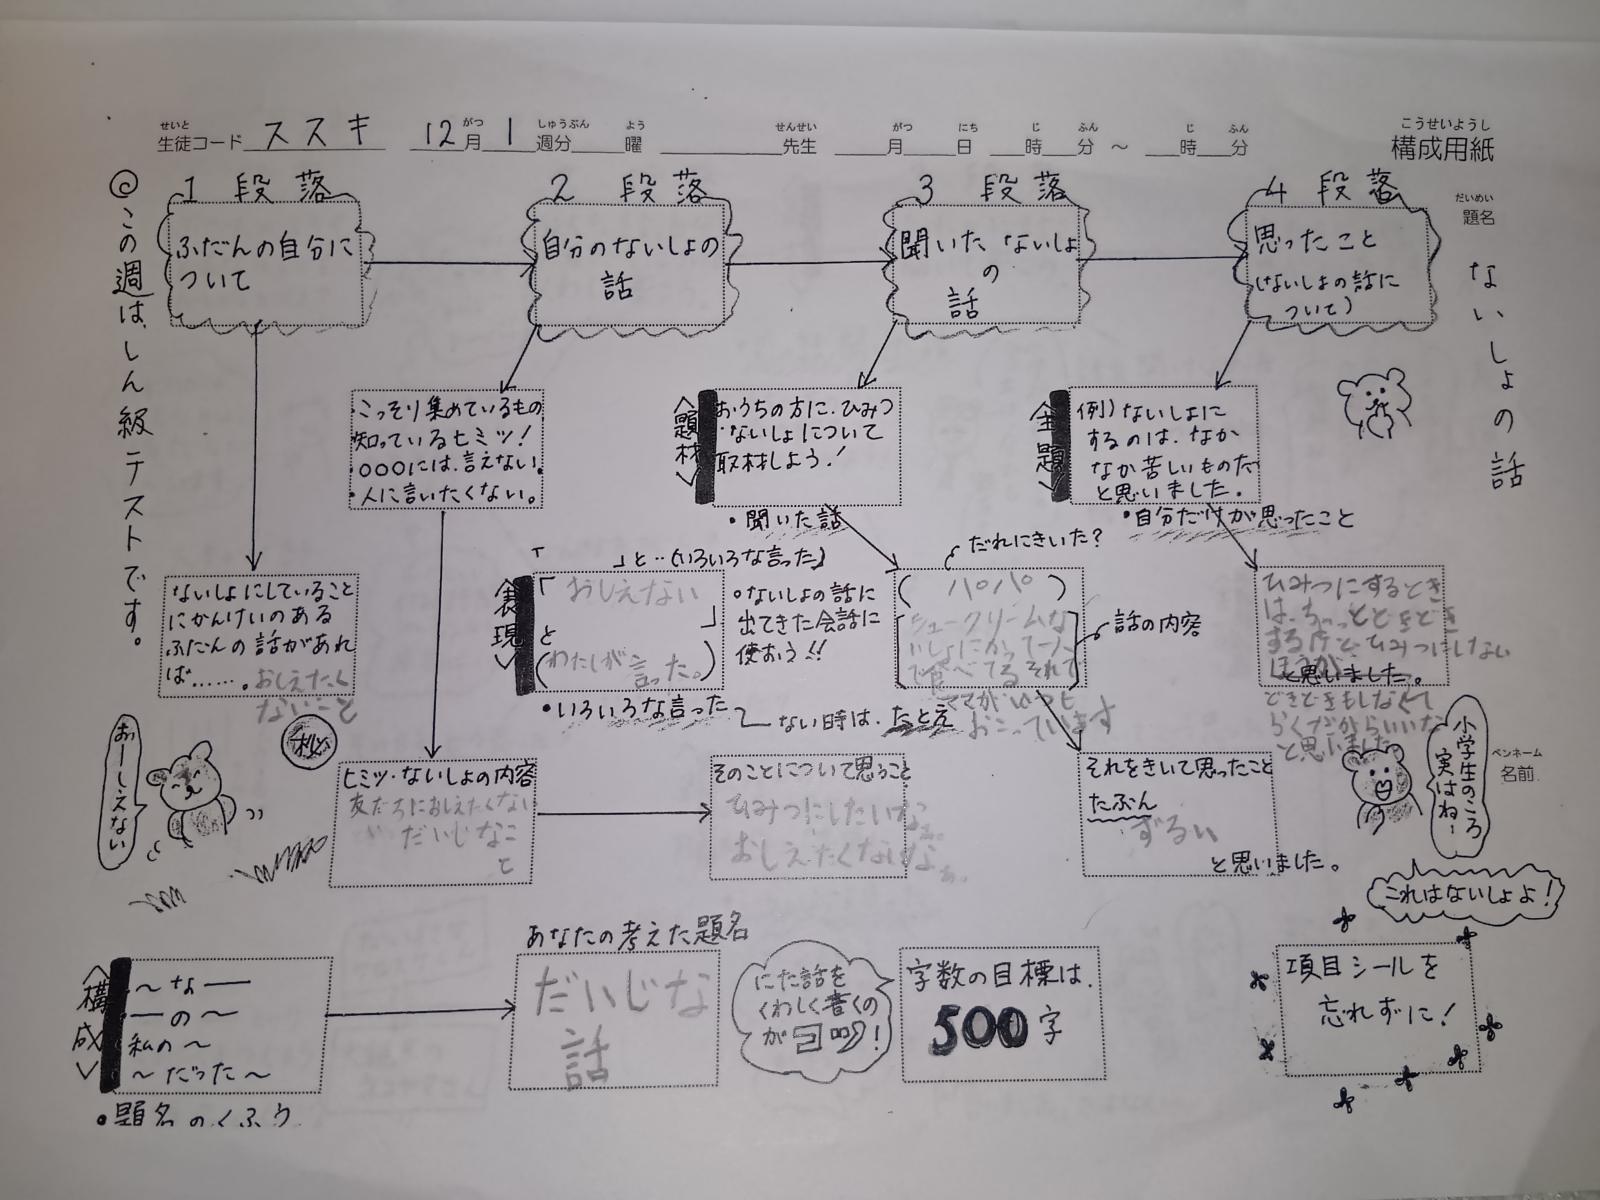 せいと がつ しゅうぶん よう せんせい がつ にち じ ふん じ ふん こうせいようし
生徒コード ススキ 12月 1 週分 曜 先生 月 日 時 分 ～ 時 分 構成用紙
だいめい
題名
ないしょの話
ペンネーム
名前
◎この週は、しん級テストです。
1 段落
ふだんの自分に
ついて
2 段落
自分のないしょの
話
3 段落
聞いた ないしょ
の
話
4 段落
思ったこと
(ないしょの話に
ついて)
・こっそり集めているもの
知っているヒミツ!
・○○○には、言えない。
・人に言いたくない。
〈題材〉
おうちの方に、ひみつ
ないしょについて
取材しよう!
・聞いた話
〈主題〉
例)ないしょに
するのは、なか
なか苦しいものだ
と思いました。
・自分だけが思ったこと
ないしょにしていること
にかんけいのある
ふだんの話があれ
ば……。おしえたく
ないこと
「 」と…(いろいろな言った)
〈表現〉
「おしえない
」
と
(わたしが言った。)
・いろいろな言った
ない時は、たとえ
○ないしょの話に
出てきた会話に
使おう!!
だれにきいた?
( パパ )
シュークリームな
いしょにかって一人
で食べてる それで
ママがいつも
おこっています
話の内容
ひみつにするとき
は、ちょっとどきどき
する けど、ひみつにしない
ほうが
と思いました。
どきどきもしなくて
らくだからいいな
と思いました
おーしえない
秘
ヒミツ・ないしょの内容
友だちにおしえたくない
だいじなこ
と
そのことについて思うこと
ひみつにしたいなぁ。
おしえたくないなぁ。
それをきいて思ったこと
たぶん
ずるい
と思いました。
小学生のころ
実はね…
これはないしょよ!
〈構成〉
～な――
――の～
私の～
～だった～
・題名のくふう
あなたの考えた題名
だいじな
話
にた話を
くわしく書くの
がコツ!
字数の目標は、
500字
項目シールを
忘れずに!